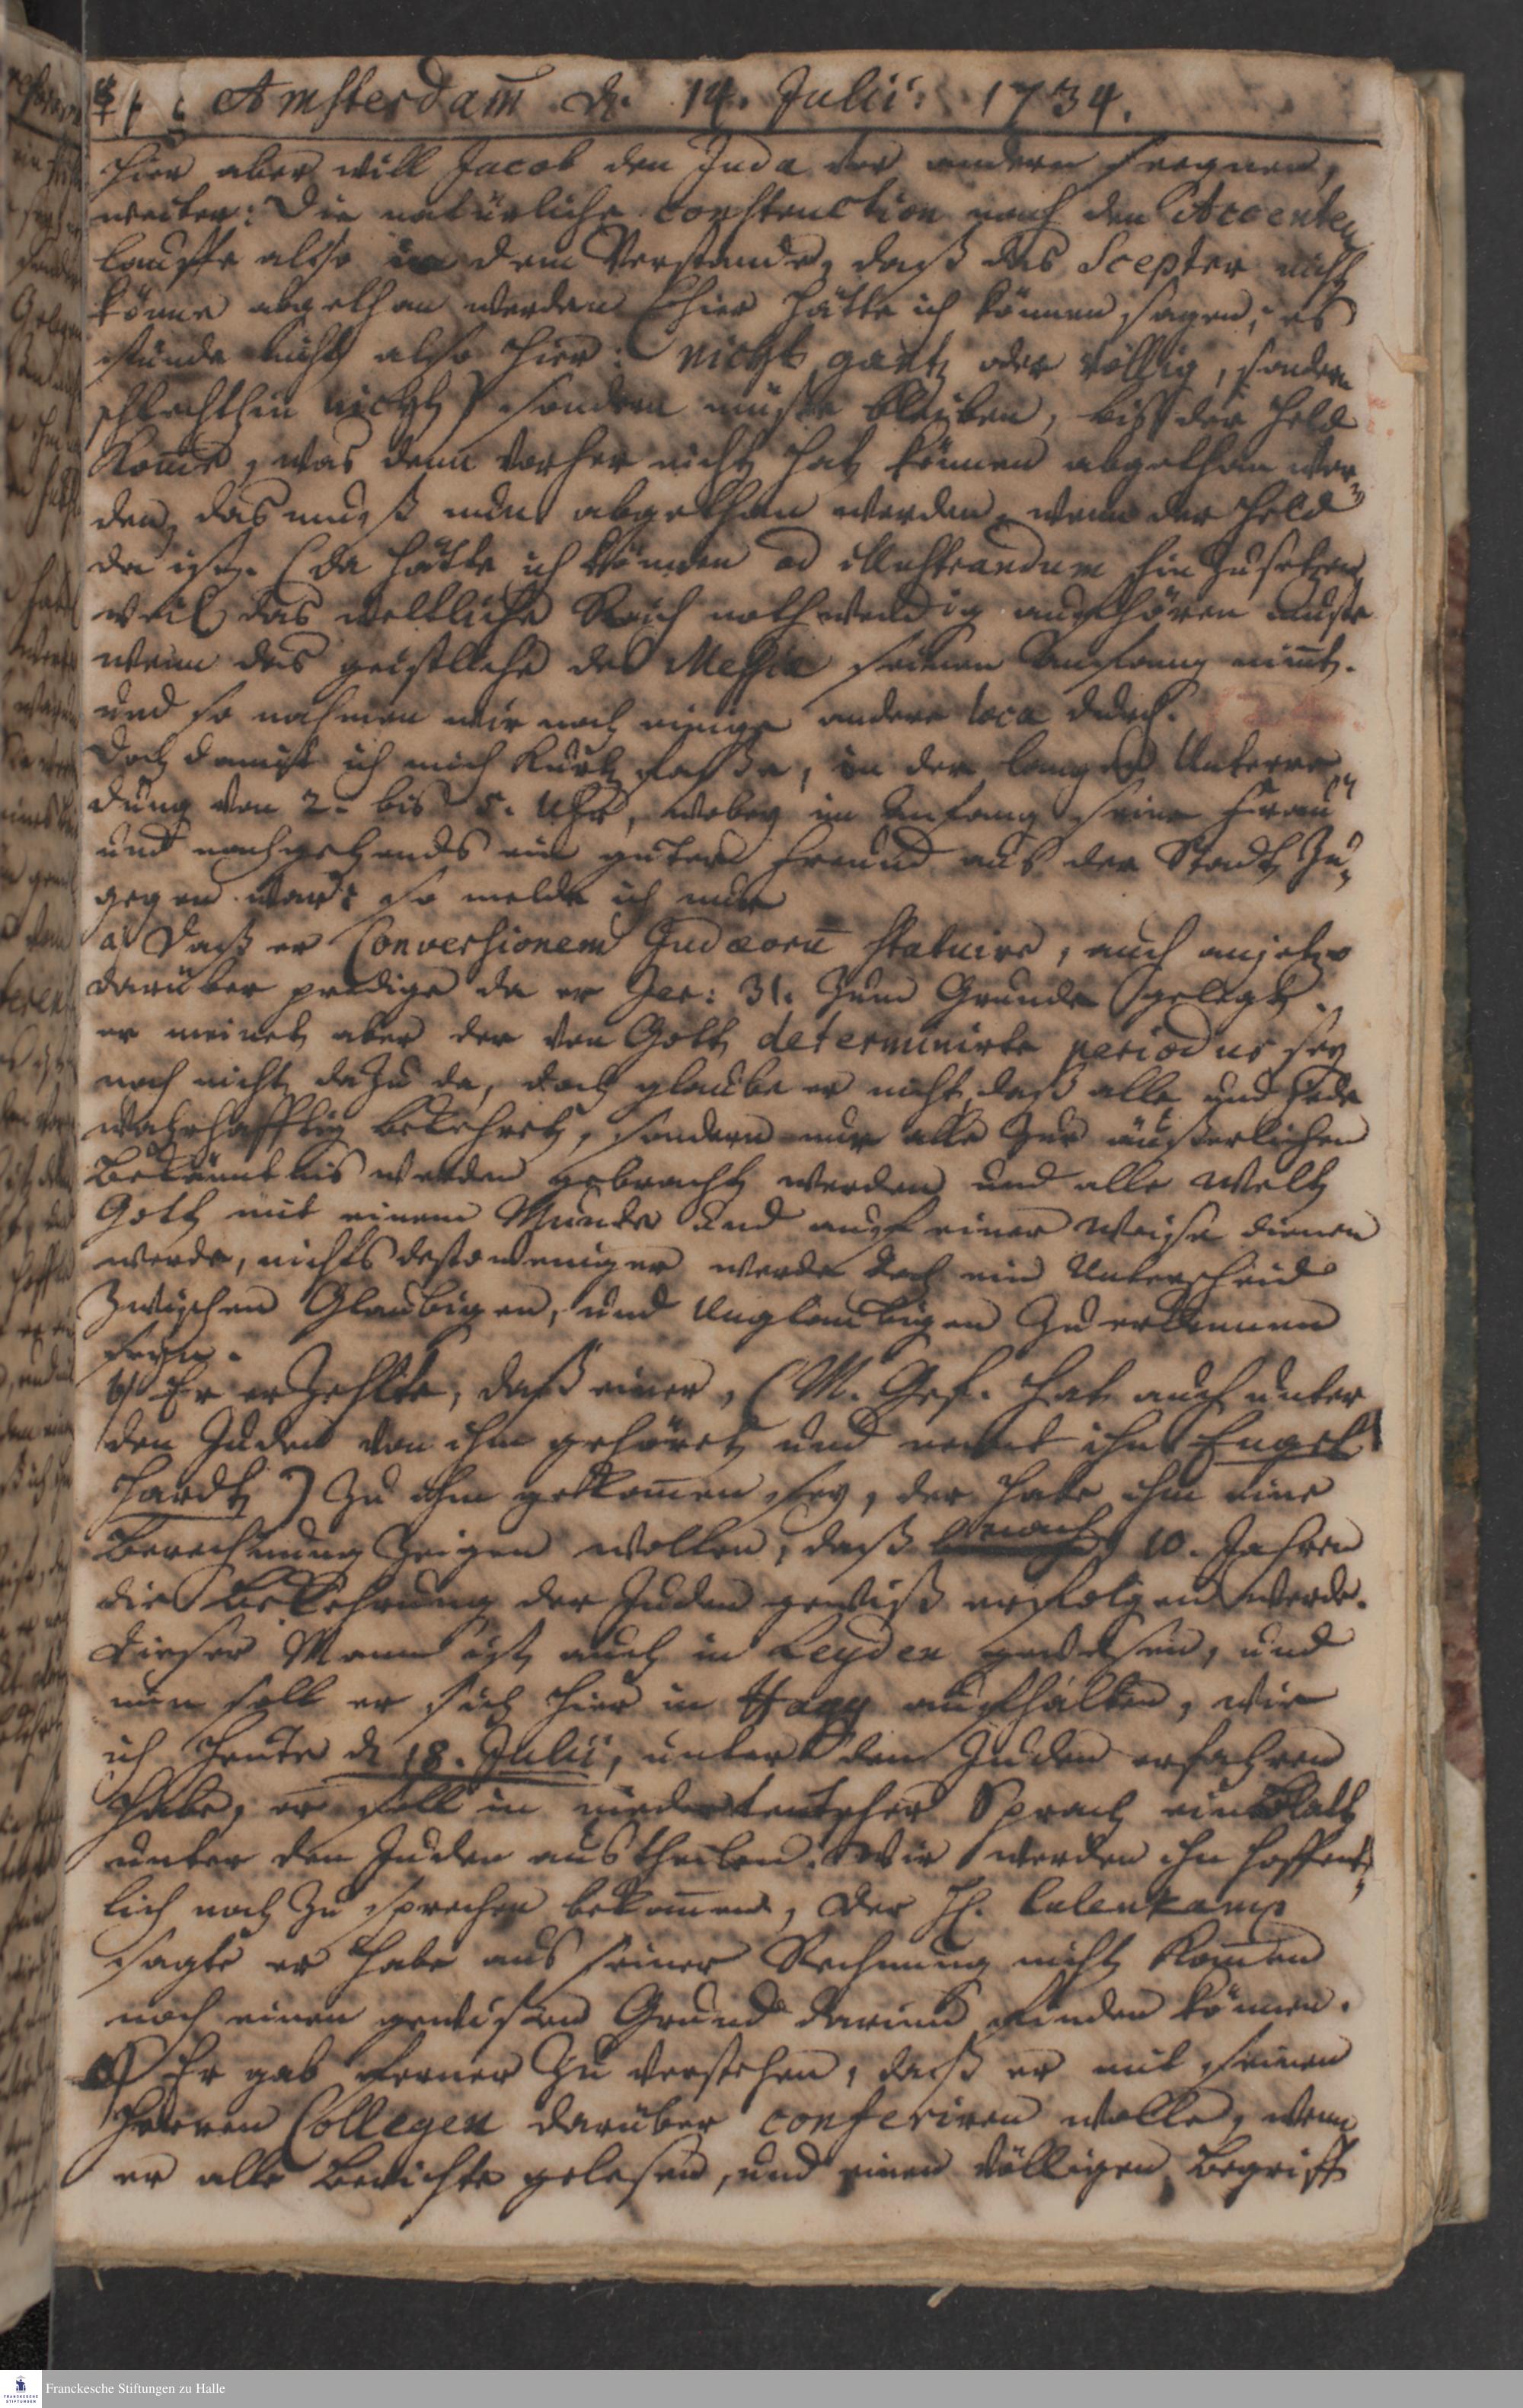 Amsterdam d. 14. Julii: 1734.
hier aber will Jacob den Juda vor andern seegnen,
weiter: Die natürliche Construction nach den Accenten
lauffe also in dem Verstande, daß das Scepter nicht
könne abgethan werden (hier hätte ich können sagen, es
stünde nicht also hier: nicht gantz oder völlig, sondern
schlechthin nicht) sondern müste bleiben, biß der Held
Kome, was denn vorher nicht hat können abgethan wer-
den, das muß nun abgethan werden, wenn der Held
da ist. (da hätte ich können ad illustrandum hin zusetzen
weil das weltliche Reich nothwendig aufhören muste
wenn das geistliche des Messiae seinen Anfang nimt.
und so nahmen wir noch einige andere loca durch.
Doch damit ich mich Kurtz faße, in der langen Unterre-
dung von 2. bis 5. Uhr, wobey im Anfang seine Frau
und nachgehends ein guter Freund aus der Stadt zu-
gegen war: so melde ich nur
a) Daß er Conversionem Judaeoru statuire, auch anjetzo
darüber predige da er Jer: 31. zum Grunde gelegt.
er meinet aber der von Gott determinirte periodus sey
noch nicht dazu da, doch glaube er nicht, daß alle und jede
wahrhafftig bekehret, sondern nur alle zur äußerlichen
Bekäntnis werden gebracht werden und alle Welt
Gott mit einem Munde und auf einer Weise dienen
werde, nichts destoweniger werde doch ein Unterscheid
zwischen Glaubigen, und Unglaubigen zu erkennen
seyn.
b) Er erzehlte, daß einer, (M. Ges. hat auch unter
den Juden von ihm gehöret und nennt ihn Engel
hardt) zu ihm gekommen sey, der habe ihm eine
Berechnung zeigen wollen, daß nach 10. Jahren
die Bekehrung der Juden gewiß erfolgen werde.
Dieser Mann ist auch in Leyden gewesen, und
nun soll er sich hier in Haag aufhalten, wie
ich heute d 18. Julii, unter den Juden erfahren
habe, er soll in niederteutscher Sprach ein Blatt
unter den Juden austheilen. Wir werden ihn hoffent-
lich noch zu sprechen bekommen, Der H. Culenkamp
sagte er habe aus seiner Rechnung nicht Komen
noch einen gewissen Grund darinn finden können.
c) Er gab ferner zu verstehen, daß er mit seinen
Herren Collegen darüber conferiren wolle, wenn
er alle Berichte gelesen, und einen völligen Begriff
Franckesche Stiftungen zu Halle